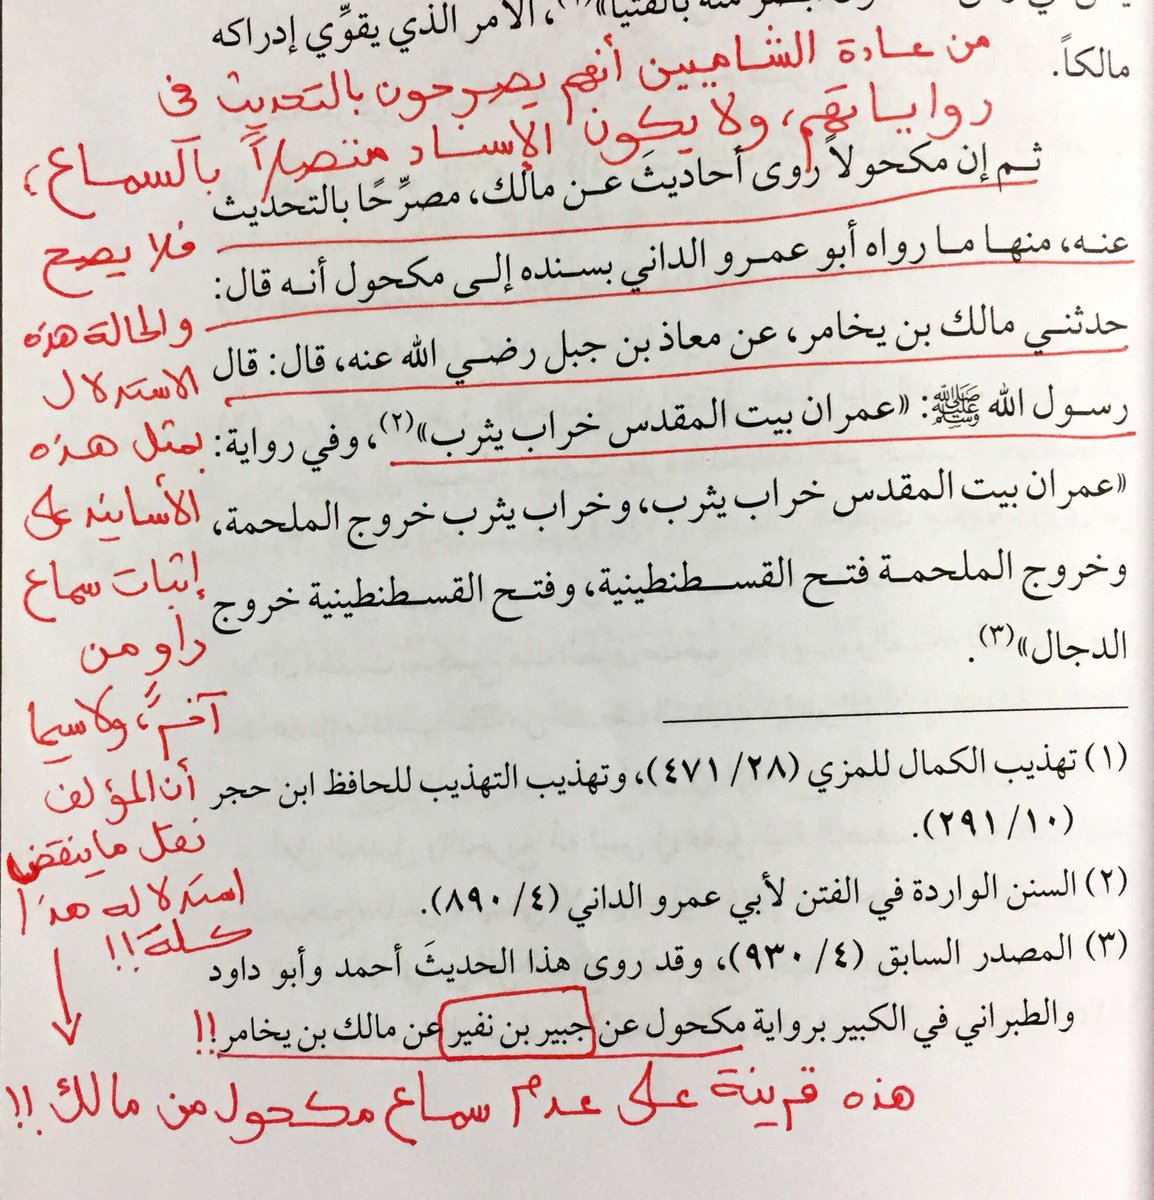 بالفتيا»(١)، الأمر الذي يقوّي إدراكه
مالكاً.
من عادة الشاميين أنهم يصرحون بالتحديث في
رواياتهم، ولا يكون الإسناد متصلاً بالسماع،
ثـم إن مكحولاً روى أحاديثَ عـن مالك، مصرِّحًا بالتحديث
عنـه، منهـا مـا رواه أبو عمـرو الداني بسـنده إلـى مكحول أنـه قال:
حدثنـي مالك بن يخامر، عن معاذ بن جبل رضـي الله عنه، قال: قال
رسـول الله ﷺ: «عمران بيت المقدس خراب يثرب»(٢)، وفي رواية:
«عمران بيت المقدس خراب يثرب، وخراب يثرب خروج الملحمة،
وخروج الملحمـة فتـح القسـطنطينية، وفتـح القسـطنطينية خروج
الدجال»(٣).
فلا يصح
والحالة هذه
الاستدلال
بمثل هذه
الأسانيد على
إثبات سماع
راوٍ من
آخر، ولا سيما
أن المؤلف
نقل ما ينقض
استدلاله هذا
كله!!
(١) تهذيب الكمال للمزي (٢٨/ ٤٧١)، وتهذيب التهذيب للحافظ ابن حجر
(١٠/ ٢٩١).
(٢) السنن الواردة في الفتن لأبي عمرو الداني (٤/ ٨٩٠).
(٣) المصدر السابق (٤/ ٩٣٠)، وقد روى هذا الحديثَ أحمد وأبو داود
والطبراني في الكبير برواية مكحول عن جبير بن نفير عن مالك بن يخامر!!
هذه قرينة على عدم سماع مكحول من مالك!!